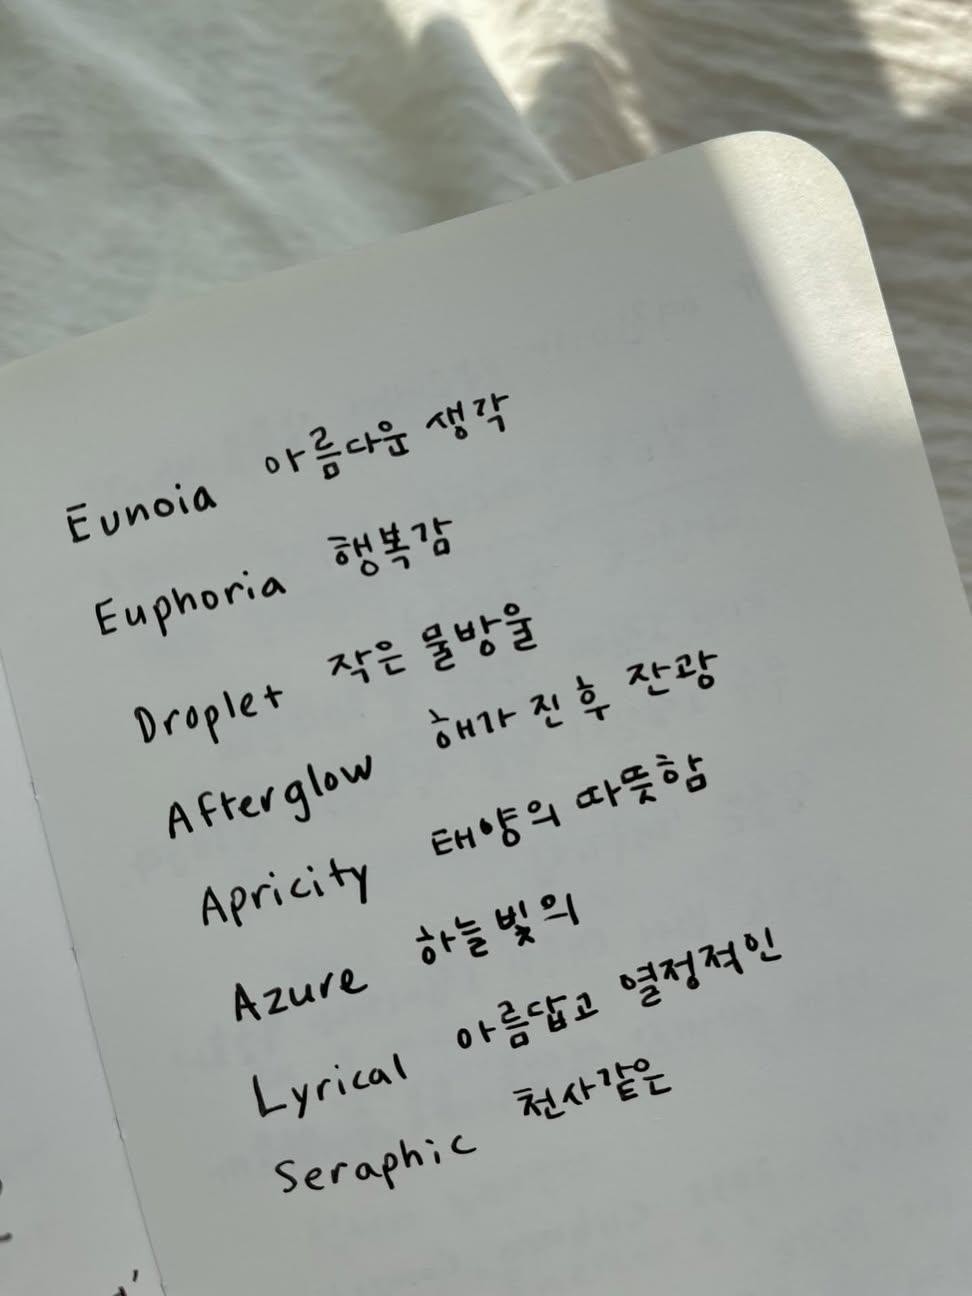 Eunoia 아름다운 생각
Euphoria 행복감
Droplet 작은 물방울
Afterglow 해가 진 후 잔광
Apricity 태양의 따뜻함
Azure 하늘빛의
Lyrical 아름답고 열정적인
Seraphic 천사같은